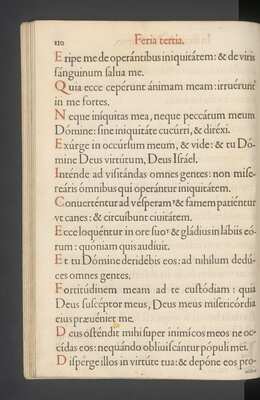 110 Feria tertia.
Eripe me de operántibus iniquitátem: & de viris
sánguinum salua me.
Quia ecce cepérunt ánimam meam: irruérunt
in me fortes.
Neque iníquitas mea, neque peccátum meum
Dómine: sine iniquitáte cucúrri, & diréxi.
Exúrge in occúrsum meum, & vide: & tu Dó-
mine Deus virtútum, Deus Israël.
Inténde ad visitándas omnes gentes: non mise-
reáris ómnibus qui operántur iniquitátem.
Conuerténtur ad vésperam: & famem patiéntur
vt canes: & circuíbunt ciuitátem.
Ecce loquéntur in ore suo: & gládius in lábiis eó-
rum: quóniam quis audíuit.
Et tu Dómine deridébis eos: ad níhilum dedú-
ces omnes gentes.
Fortitúdinem meam ad te custódiam: quia
Deus suscéptor meus, Deus meus misericórdia
eius præuéniet me.
Deus osténdit mihi super inimícos meos ne oc-
cídas eos: nequándo obliuiscántur pópuli mei.
Dispérge illos in virtúte tua: & depóne eos pro-